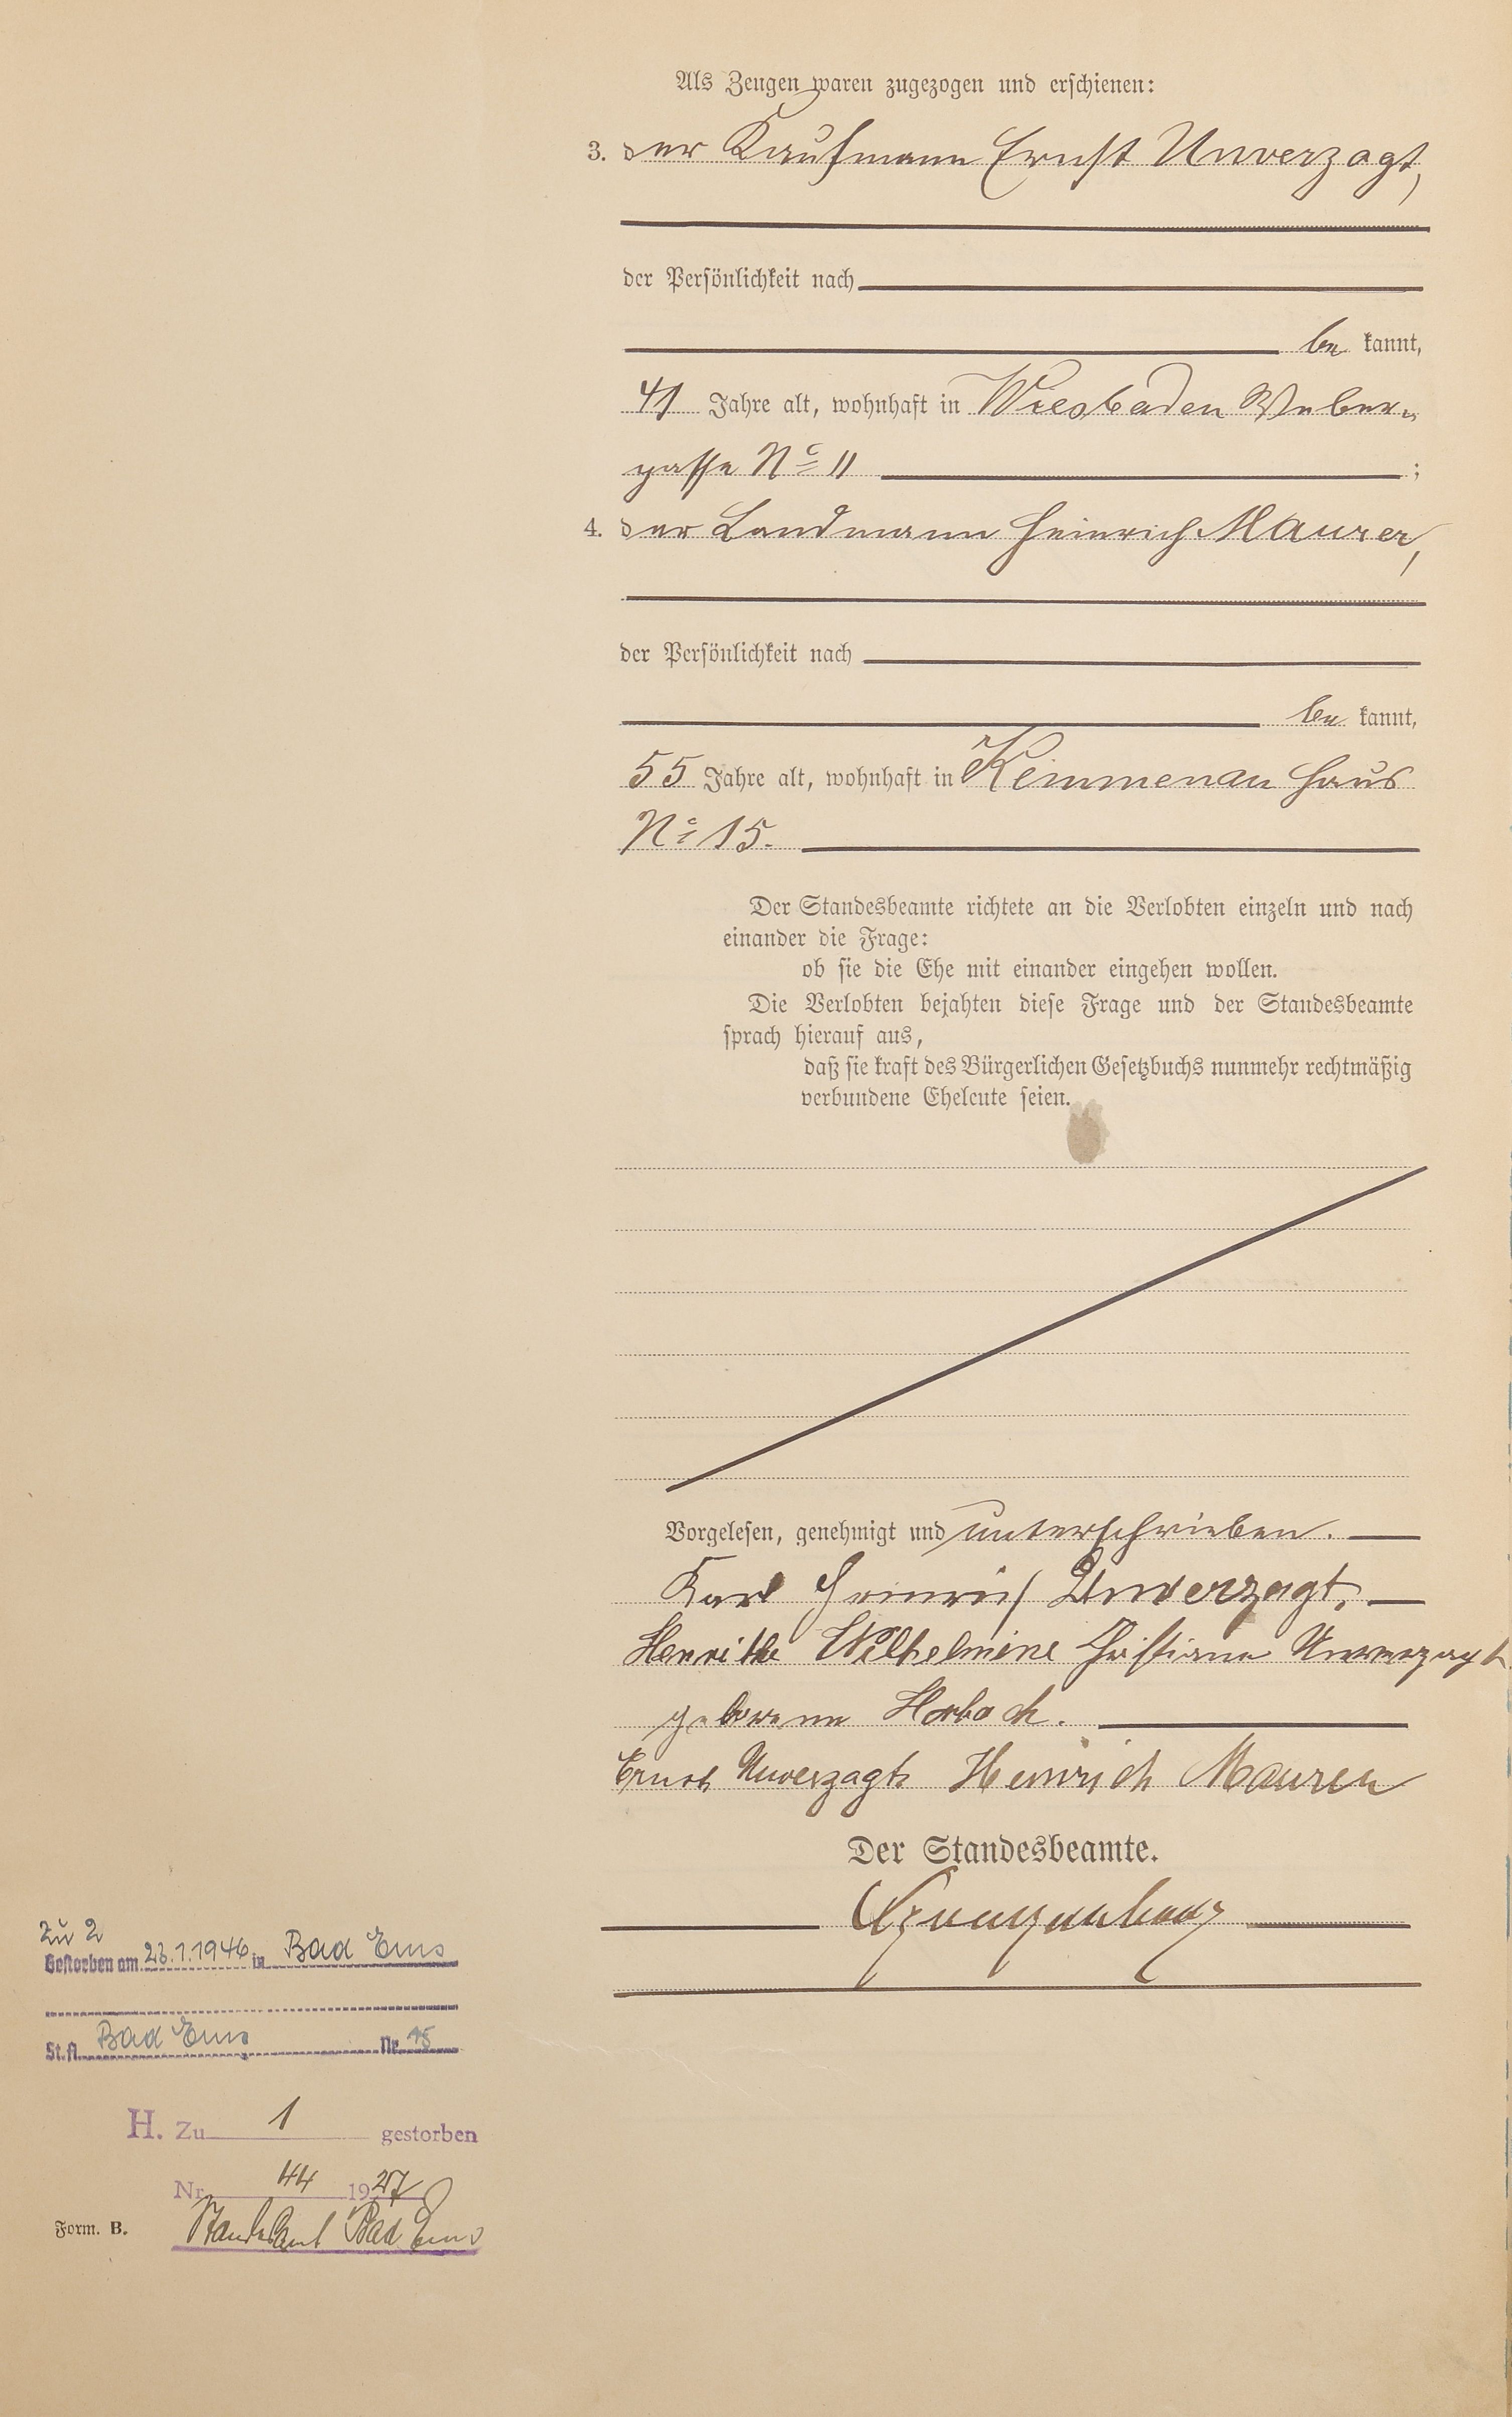 Als Zeugen waren zugezogen und erschienen:
3. der Kaufmann Ernst Unverzagt,
der Persönlichkeit nach
be kannt,
41 Jahre alt, wohnhaft in Wiesbaden Weber-
gasse No 11 ;
4. der Landmann Heinrich Maurer,
der Persönlichkeit nach
be kannt,
55 Jahre alt, wohnhaft in Kemmenau Haus
No 15.
Der Standesbeamte richtete an die Verlobten einzeln und nach
einander die Frage:
ob sie die Ehe mit einander eingehen wollen.
Die Verlobten bejahten diese Frage und der Standesbeamte
sprach hierauf aus,
daß sie kraft des Bürgerlichen Gesetzbuchs nunmehr rechtmäßig
verbundene Eheleute seien.
Vorgelesen, genehmigt und unterschrieben.
Karl Heinrich Unverzagt.
Wilhelmine Christiane Unverzagt
geborene Horbach.
Ernst Unverzagt Heinrich Maurer
Der Standesbeamte.
Zu 2
Gestorben am 23.1.1946 in Bad Ems
St.A. Bad Ems Nr.
H. Zu 1 gestorben
Nr. 44 1927
Standesamt Bad Ems
Form. B.